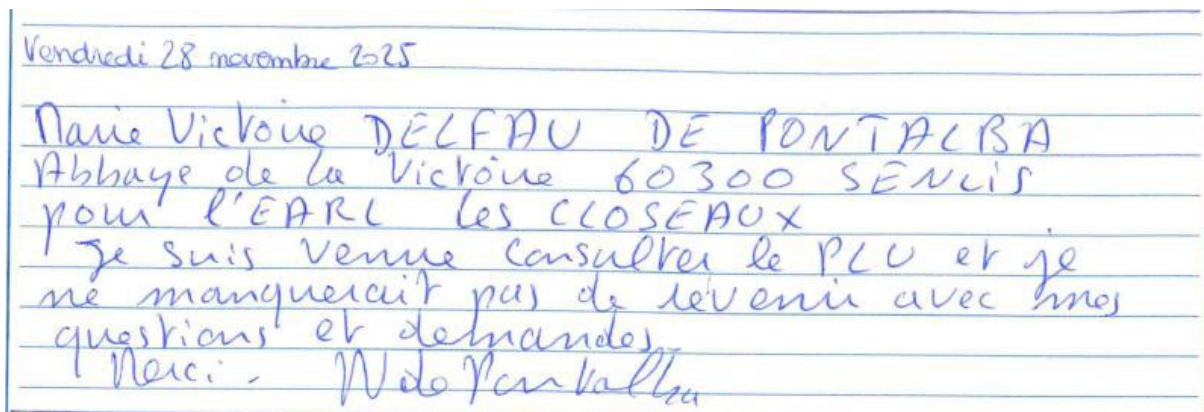 Vendredi 28 novembre 2025
Marie Victoire DELFAU DE PONTALBA
Abbaye de la Victoire 60300 SENLIS
pour l'EARL les CLOSEAUX
Je suis venue consulter le PLU et je
ne manquerait pas de revenir avec mes
questions et demandes.
Merci. de Pontalba